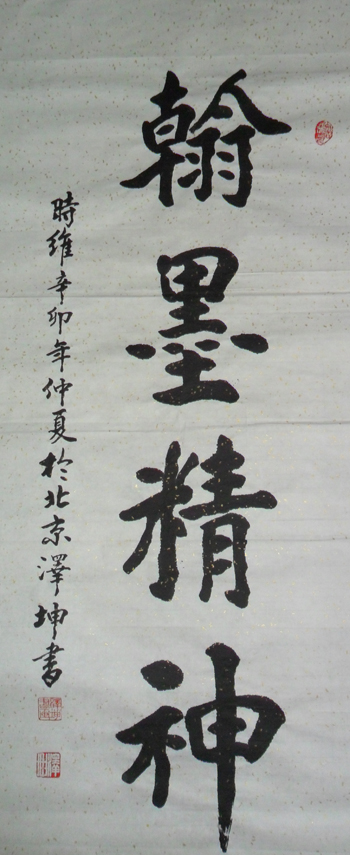 翰墨精神
時維辛卯年仲夏於北京澤坤書